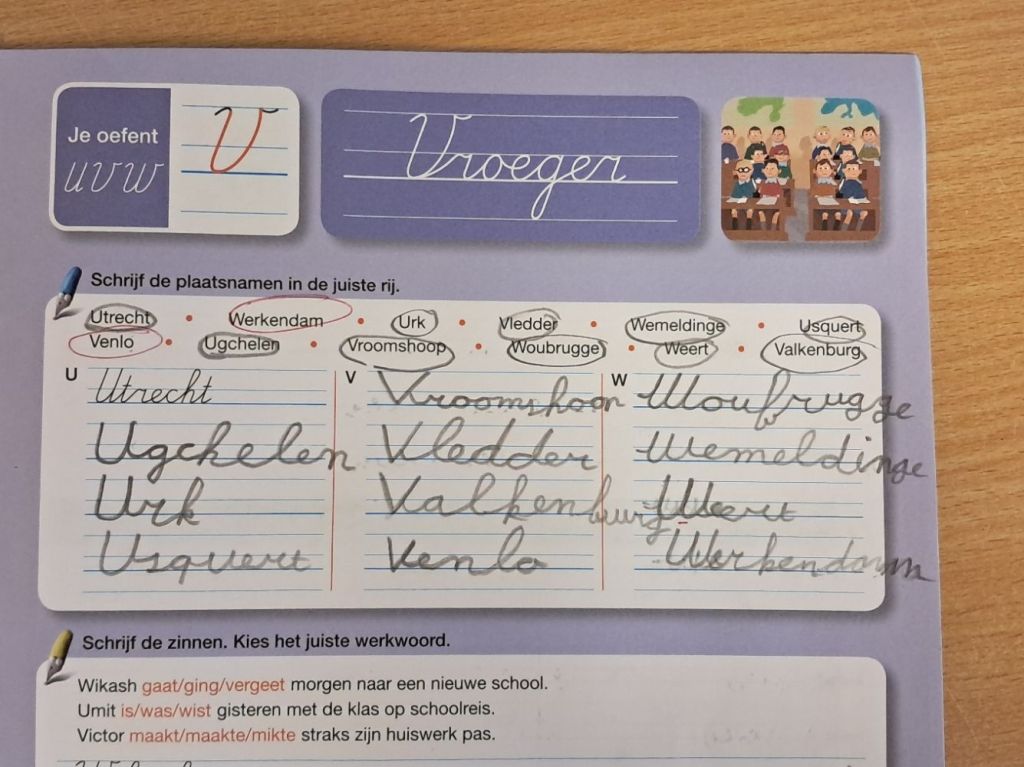 Je oefent
u v w
V
Vroeger
Schrijf de plaatsnamen in de juiste rij.
Utrecht • Werkendam • Urk • Vledder • Wemeldinge • Usquert
Venlo • Ugchelen • Vroomshoop • Woubrugge • Weert • Valkenburg
U V W
Utrecht Vroomshoop Woubrugge
Ugchelen Vledder Wemeldinge
Urk Valkenburg Weert
Usquert Venlo Werkendam
Schrijf de zinnen. Kies het juiste werkwoord.
Wikash gaat/ging/vergeet morgen naar een nieuwe school.
Umit is/was/wist gisteren met de klas op schoolreis.
Victor maakt/maakte/mikte straks zijn huiswerk pas.